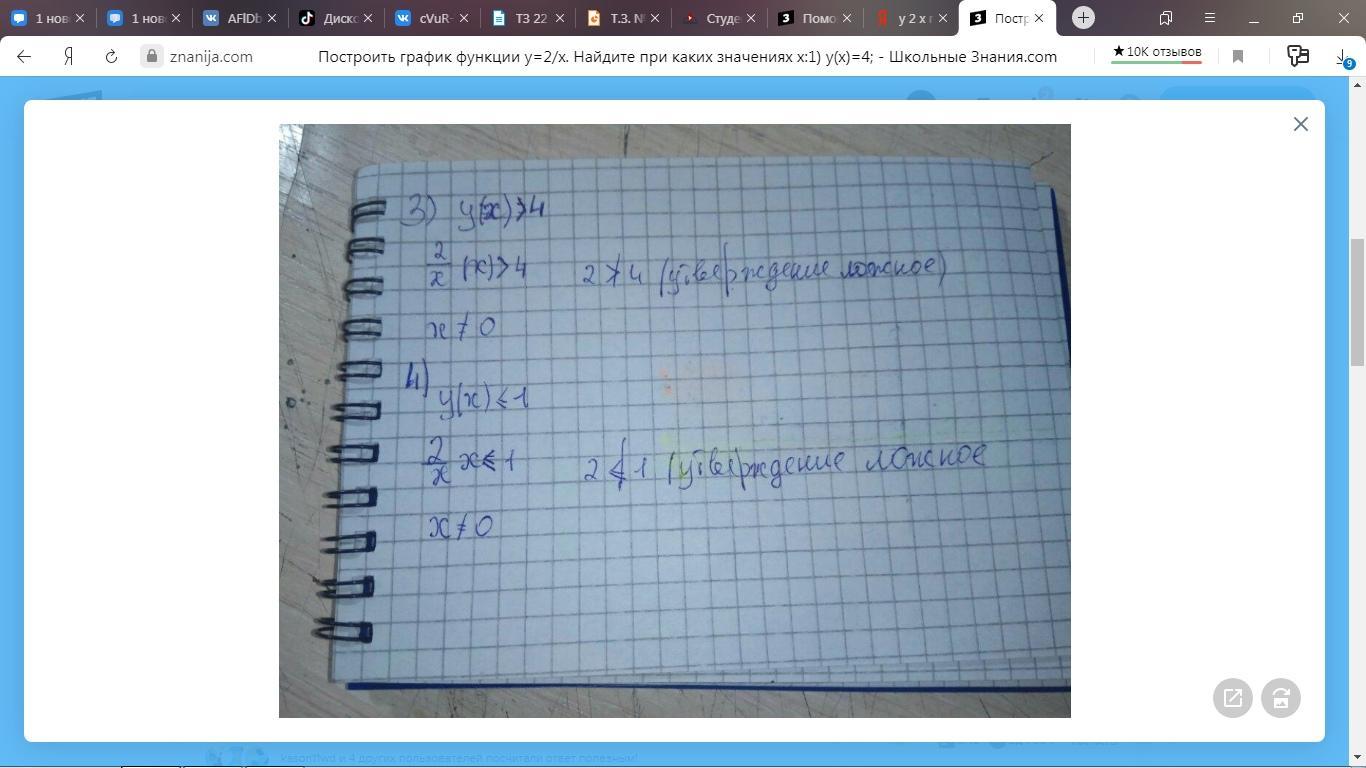 1 нов
1 нов
AFlDb
Диск
cVuR-
ТЗ 22
Т.З. №
Студе
Помо
у 2 х г
Постр
znanija.com
Построить график функции y=2/x. Найдите при каких значениях x:1) y(x)=4; - Школьные Знания.com
★10K отзывов
9
3) y(x)>4
2/x (x)>4 2≯4 (утверждение ложное)
x≠0
4)
y(x)≤1
2/x x≤1 2≰1 (утверждение ложное
x≠0
kason1fwd и 4 других пользователей посчитали ответ полезным!